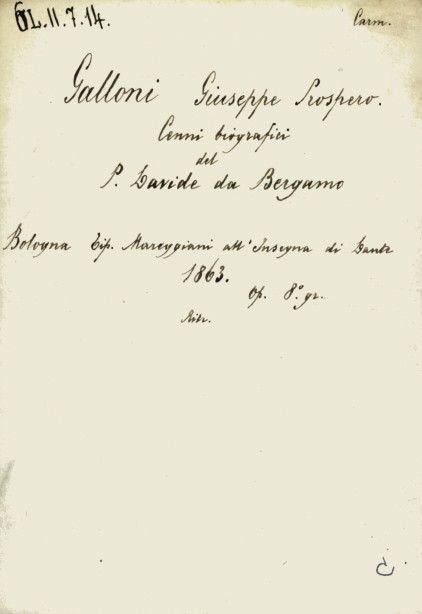 6L.II.7.14.
Carm.
Galloni Giuseppe Prospero.
Cenni biografici
del
P. Davide da Bergamo
Bologna Tip. Mareggiani all'Insegna di Dante
1863.
Op. 8.° gr.
Ritr.